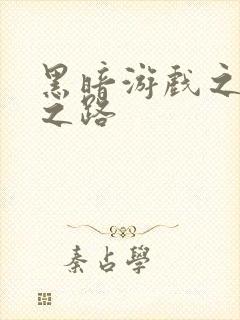 黑暗游戏之
之路
秦占學